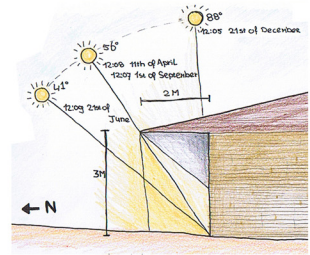 88°
12:05 21st of December
56°
12:08 11th of April
12:07 1st of September
41°
12:09 21st of
June
2M
3M
N